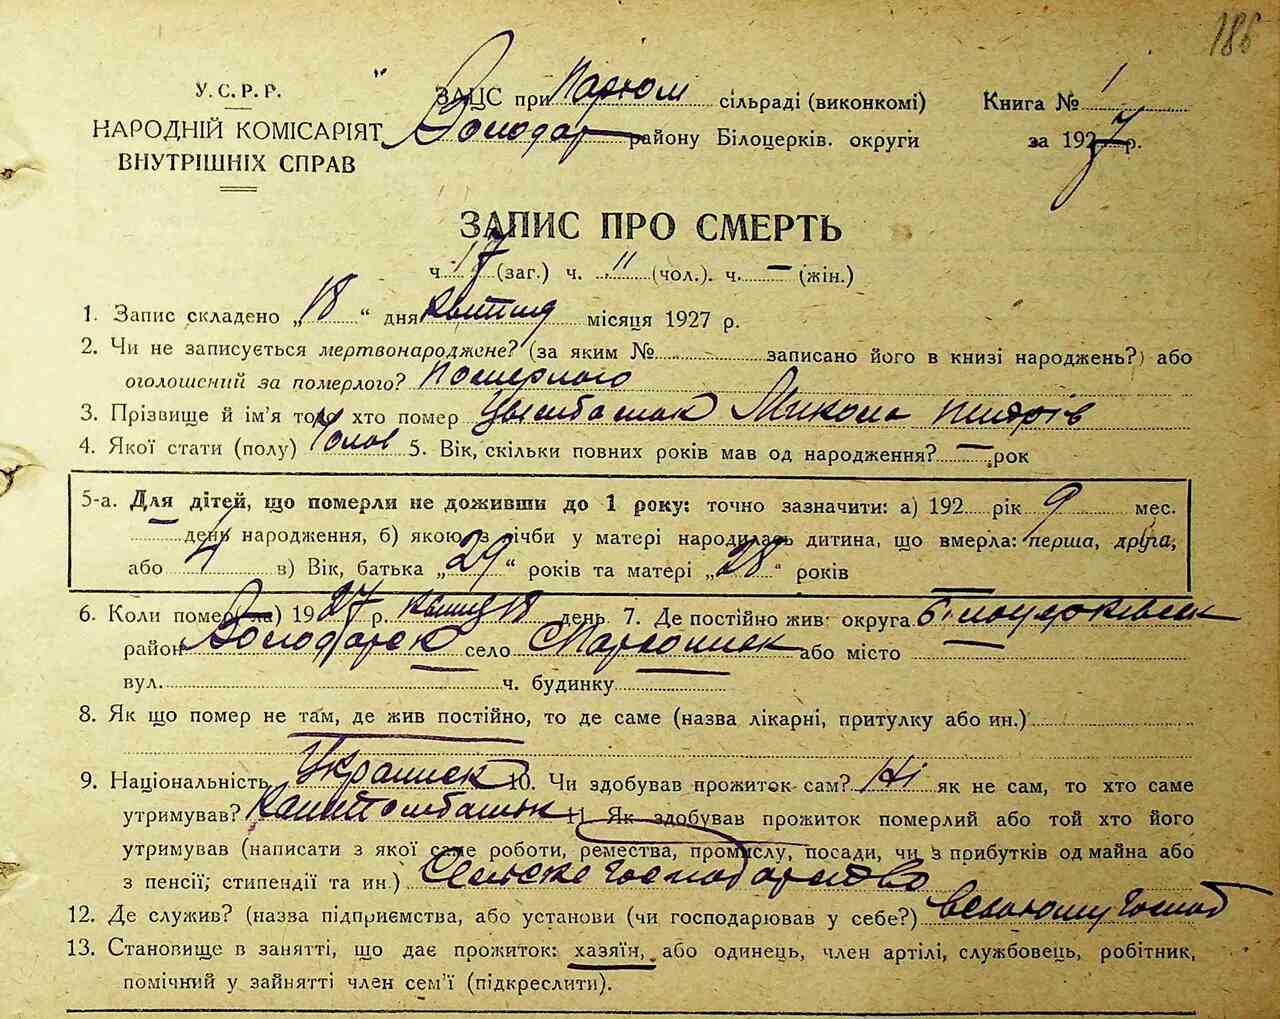 186
У.С.Р.Р.
НАРОДНІЙ КОМІСАРІЯТ
ВНУТРІШНІХ СПРАВ
ЗАЦС при сільраді (виконкомі)
Володар району Білоцерків. округи
Книга № 1
за 1927 р.
ЗАПИС ПРО СМЕРТЬ
ч. 17 (заг.) ч. 11 (чол.). ч. – (жін.)
1. Запис складено „18“ дня квітня місяця 1927 р.
2. Чи не записується мертвонароджене? (за яким № записано його в книзі народжень?) або
оголошений за померлого? померлого
3. Прізвище й ім'я того хто помер Микола
4. Якої стати (полу) Чолов 5. Вік, скільки повних років мав од народження? – рок
5-а. Для дітей, що померли не доживши до 1 року: точно зазначити: а) 192 рік 9 мес.
– день народження, б) якою з лічби у матері народилась дитина, що вмерла: перша, друга,
або 4 в) Вік, батька „29“ років та матері „28“ років
6. Коли помер(ла) 1927 р. квітня 18 день 7. Де постійно жив: округа Білоцерківськ
район Володарськ село або місто
вул. ч. будинку
8. Як що помер не там, де жив постійно, то де саме (назва лікарні, притулку або ин.)
9. Національність Українськ 10. Чи здобував прожиток сам? Ні як не сам, то хто саме
утримував? 11 Як здобував прожиток померлий або той хто його
утримував (написати з якої саме роботи, ремества, промислу, посади, чи з прибутків од майна або
з пенсії; стипендії та ин.) Сельске господарство
12. Де служив? (назва підприємства, або установи (чи господарював у себе?) в своєму господ
13. Становище в занятті, що дає прожиток: хазяїн, або одинець, член артілі, службовець, робітник,
помічний у зайнятті член сем'ї (підкреслити).